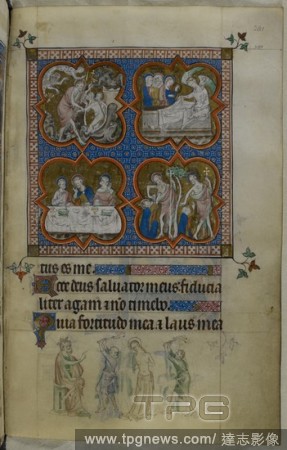 tus es me
Ecce deus saluator meus fiducia
liter agam ⁊ nō timebo
Quia fortitudo mea ⁊ laus mea
TPG
www.tpgnews.com/ 達志影像